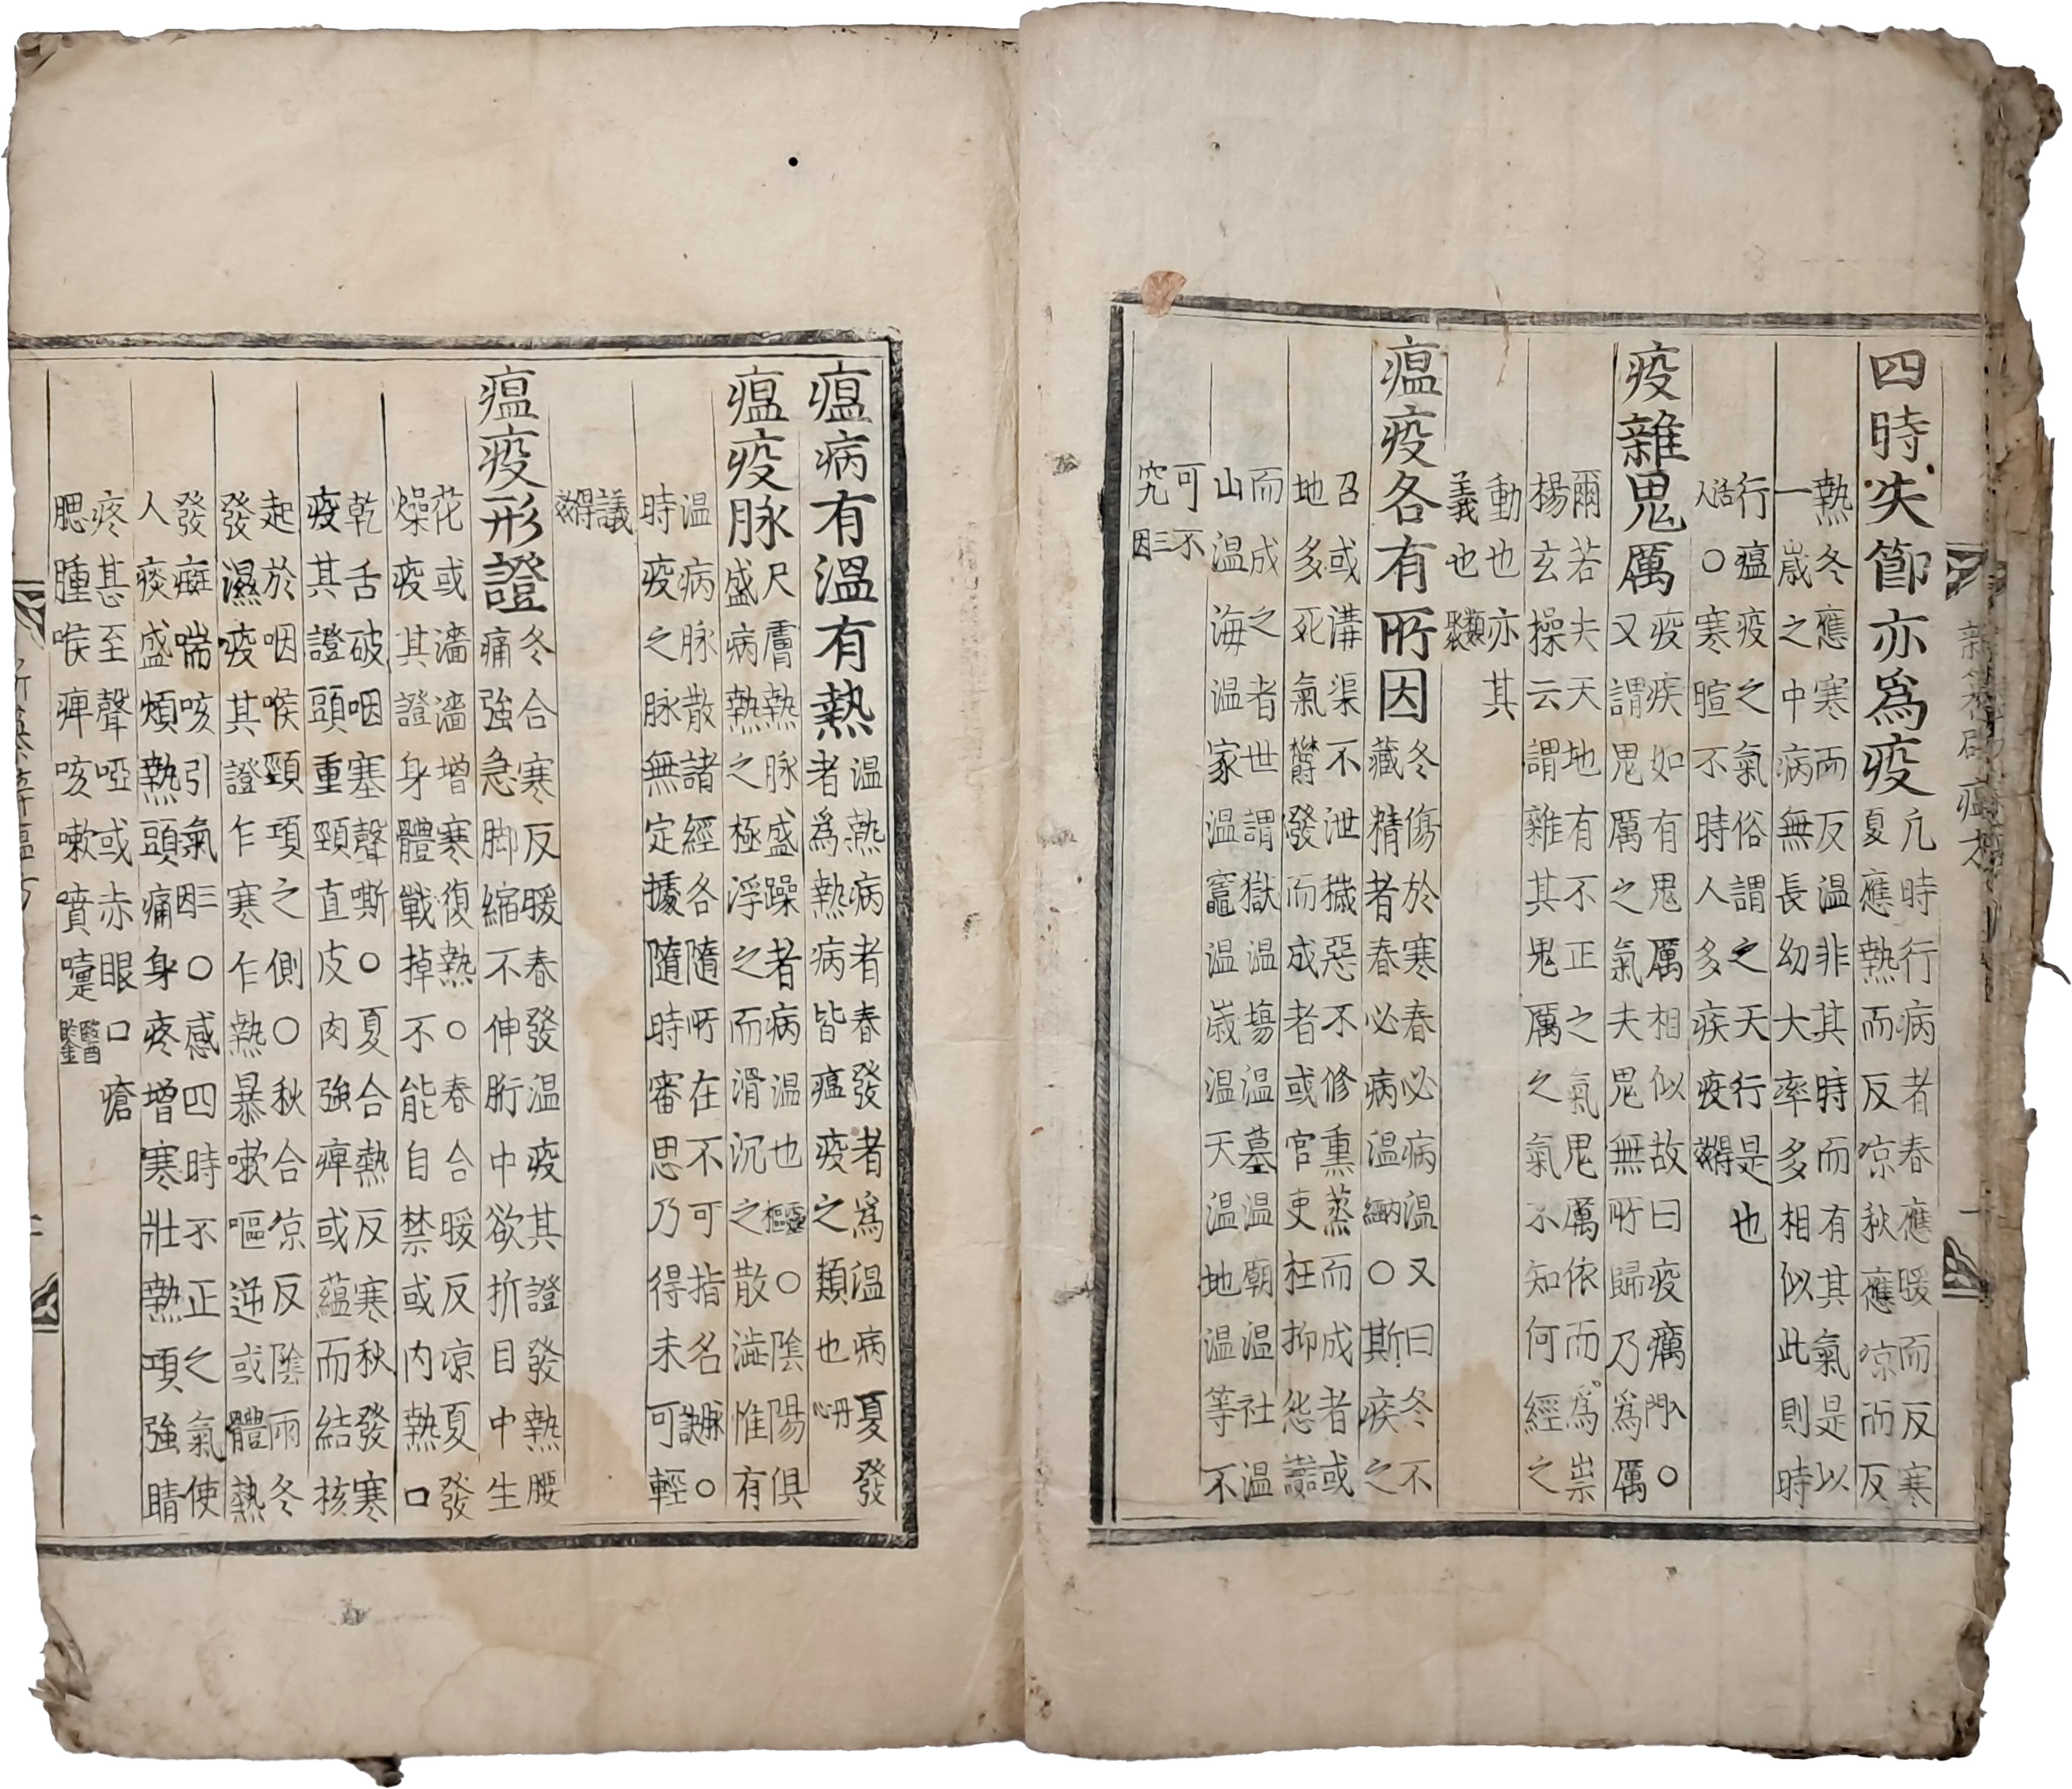 四時失節亦爲疫
凡時行病者春應暖而反寒
夏應熱而反凉秋應凉而反
熱冬應寒而反温非其時而有其氣是以
一歲之中病無長幼大率多相似此則時
行瘟疫之氣俗謂之天行是也
活人○寒暄不時人多疾疫得效
疫雜鬼厲
疫疾如有鬼厲相似故曰疫癘入門○
又謂鬼厲之氣夫鬼無所歸乃爲厲
爾若夫天地有不正之氣鬼厲依而爲崇
楊玄操云謂雜其鬼厲之氣不知何經之
動也亦其
義也類聚
瘟疫各有所因
冬傷於寒春必病温又曰冬不
藏精者春必病温內經○斯疾之
召或溝渠不泄穢惡不修熏蒸而成者或
地多死氣欝發而成者或官吏枉抑怨讟
而成之者世謂獄温塲温墓温廟温社温
山温海温家温竈温歲温天温地温等不
可不
究三因
瘟病有溫有熱
温熱病者春發者爲温病夏發
者爲熱病皆瘟疫之類也丹心
瘟疫脉
尺膚熱脉盛躁者病温也靈樞○陰陽俱
盛病熱之極浮之而滑沉之散澁惟有
温病脉散諸經各隨所在不可指名脉訣○
時疫之脉無定據隨時審思乃得未可輕
議
得效
瘟疫形證
冬合寒反暖春發温疫其證發熱腰
痛強急脚縮不伸胻中欲折目中生
花或濇濇增寒復熱○春合暖反凉夏發
燥疫其證身體戰掉不能自禁或内熱口
乾舌破咽塞聲嘶○夏合熱反寒秋發寒
疫其證頭重頸直皮肉強痺或蘊而結核
起於咽喉頸項之側○秋合凉反陰雨冬
發濕疫其證乍寒乍熱暴嗽嘔逆或體熱
發癍喘咳引氣三因○感四時不正之氣使
人痰盛煩熱頭痛身疼增寒壯熱項強睛
疼甚至聲啞或赤眼口瘡
腮腫喉痺咳嗽噴嚔醫鑑